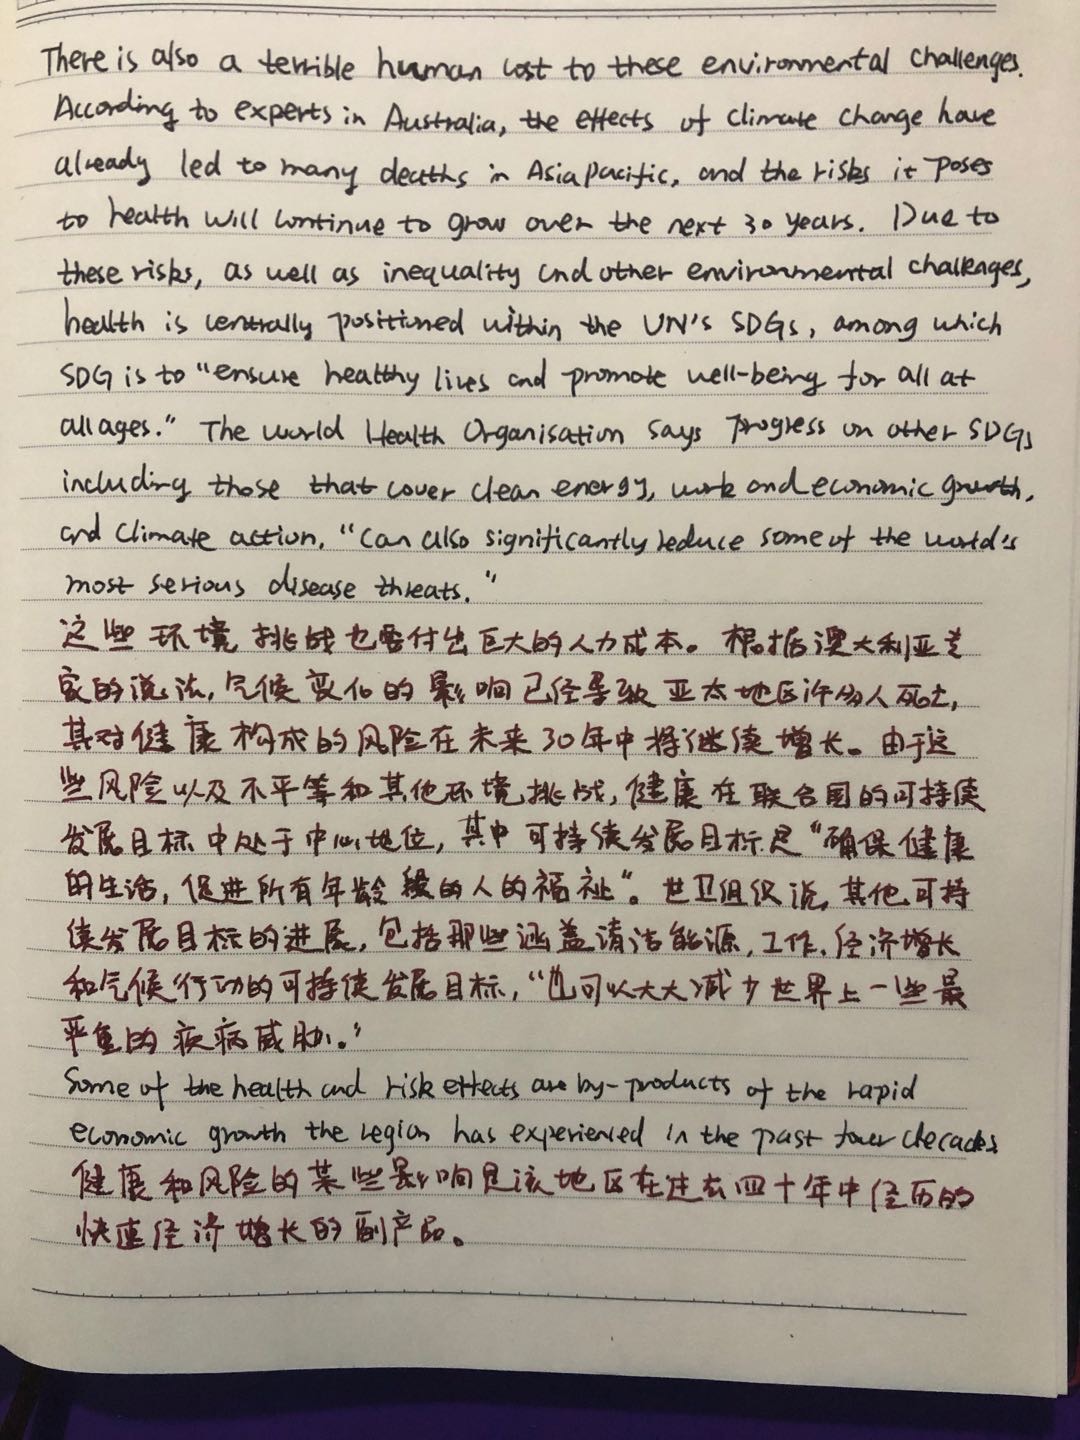 There is also a terrible human cost to these environmental challenges.
According to experts in Australia, the effects of climate change have
already led to many deaths in Asia pacific, and the risks it poses
to health will continue to grow over the next 30 years. Due to
these risks, as well as inequality and other environmental challenges,
health is centrally positioned within the UN's SDGs, among which
SDG is to "ensure healthy lives and promote well-being for all at
all ages." The world Health Organisation says progress on other SDGs
including those that cover clean energy, work and economic growth,
and climate action, "can also significantly reduce some of the world's
most serious disease threats."
这些环境挑战也要付出巨大的人力成本。根据澳大利亚专
家的说法,气候变化的影响已经导致亚太地区许多人死亡,
其对健康构成的风险在未来30年中将继续增长。由于这
些风险以及不平等和其他环境挑战,健康在联合国的可持续
发展目标中处于中心地位,其中可持续发展目标是"确保健康
的生活,促进所有年龄段的人的福祉"。世卫组织说,其他可持
续发展目标的进展,包括那些涵盖清洁能源,工作、经济增长
和气候行动的可持续发展目标,"也可以大大减少世界上一些最
严重的疾病威胁."
Some of the health and risk effects are by-products of the rapid
economic growth the region has experienced in the past four decades
健康和风险的某些影响是该地区在过去四十年中经历的
快速经济增长的副产品。